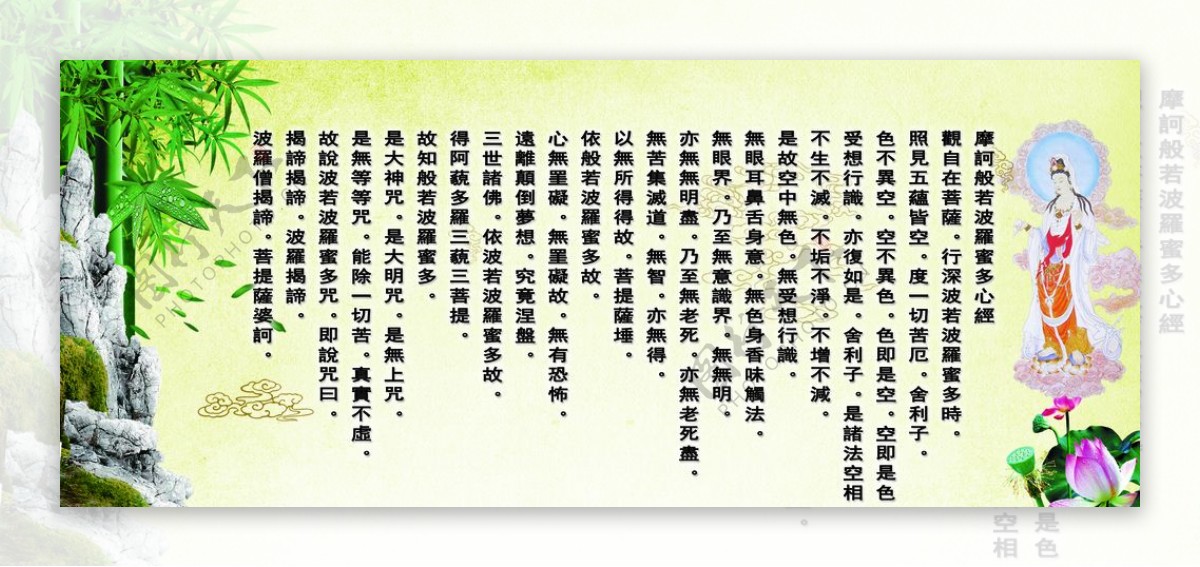 摩訶般若波羅蜜多心經
觀自在菩薩。行深波若波羅蜜多時。
照見五蘊皆空。度一切苦厄。舍利子。
色不異空。空不異色。色即是空。空即是色
受想行識。亦復如是。舍利子。是諸法空相
不生不滅。不垢不淨。不增不減。
是故空中無色。無受想行識。
無眼耳鼻舌身意。無色身香味觸法。
無眼界。乃至無意識界。無無明。
亦無無明盡。乃至無老死。亦無老死盡。
無苦集滅道。無智。亦無得。
以無所得得故。菩提薩埵。
依般若波羅蜜多故。
心無罣礙。無罣礙故。無有恐怖。
遠離顛倒夢想。究竟涅盤。
三世諸佛。依波若波羅蜜多故。
得阿藐多羅三藐三菩提。
故知般若波羅蜜多。
是大神咒。是大明咒。是無上咒。
是無等等咒。能除一切苦。真實不虛。
故說波若波羅蜜多咒。即說咒曰。
揭諦揭諦。波羅揭諦。
波羅僧揭諦。菩提薩婆訶。
摩訶般若波羅蜜多心經
是色
空相